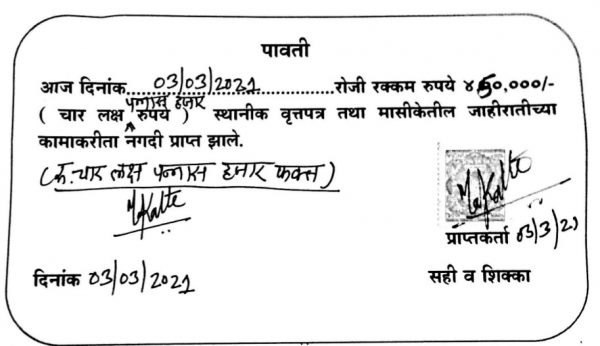 पावती
आज दिनांक...03/03/2021...................रोजी रक्कम रुपये ४५०,०००/-
पन्नास हजार
( चार लक्ष रुपये ) स्थानीक वृत्तपत्र तथा मासीकेतील जाहीरातीच्या
कामाकरीता नगदी प्राप्त झाले.
(रु. चार लक्ष पन्नास हजार फक्त)
प्राप्तकर्ता 03/3/21
दिनांक 03/03/2021
सही व शिक्का